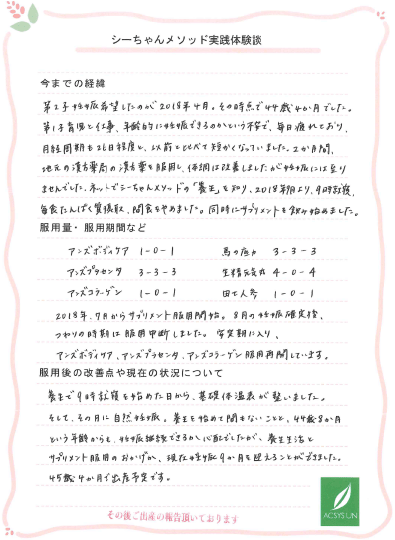 シーちゃんメソッド実践体験談
今までの経緯
第2子妊娠希望したのが2018年4月。その時点で44歳4か月でした。
第1子育児と仕事、年齢的に妊娠できるのかという不安で、毎日疲れており、
月経周期も26日程度と、以前と比べて短かくなっていました。2か月間、
地元の漢方薬局の漢方薬を服用し、体調は改善しましたが妊娠には至り
ませんでした。ネットでシーちゃんメソッドの「養生」を知り、2018年7月より、9時就寝、
毎食たんぱく質摂取、間食をやめました。同時にサプリメントを飲み始めました。
服用量・服用期間など
アンズボディケア 1-0-1 馬の底力 3-3-3
アンズプラセンタ 3-3-3 生精元気丸 4-0-4
アンズコラーゲン 1-0-1 田七人参 1-0-1
2018年、7月からサプリメント服用開始。8月の妊娠確定後、
つわりの時期は服用中断しました。安定期に入り、
アンズボディケア、アンズプラセンタ、アンズコラーゲン服用再開しています。
服用後の改善点や現在の状況について
養生で9時就寝を始めた日から、基礎体温表が整いました。
そして、その月に自然妊娠。養生を始めて間もないことと、44歳8か月
という年齢からも、妊娠継続できるか心配でしたが、養生生活と
サプリメント服用のおかげか、現在妊娠9か月を迎えることができました。
45歳4か月で出産予定です。
その後ご出産の報告頂いております
ACSYSUN